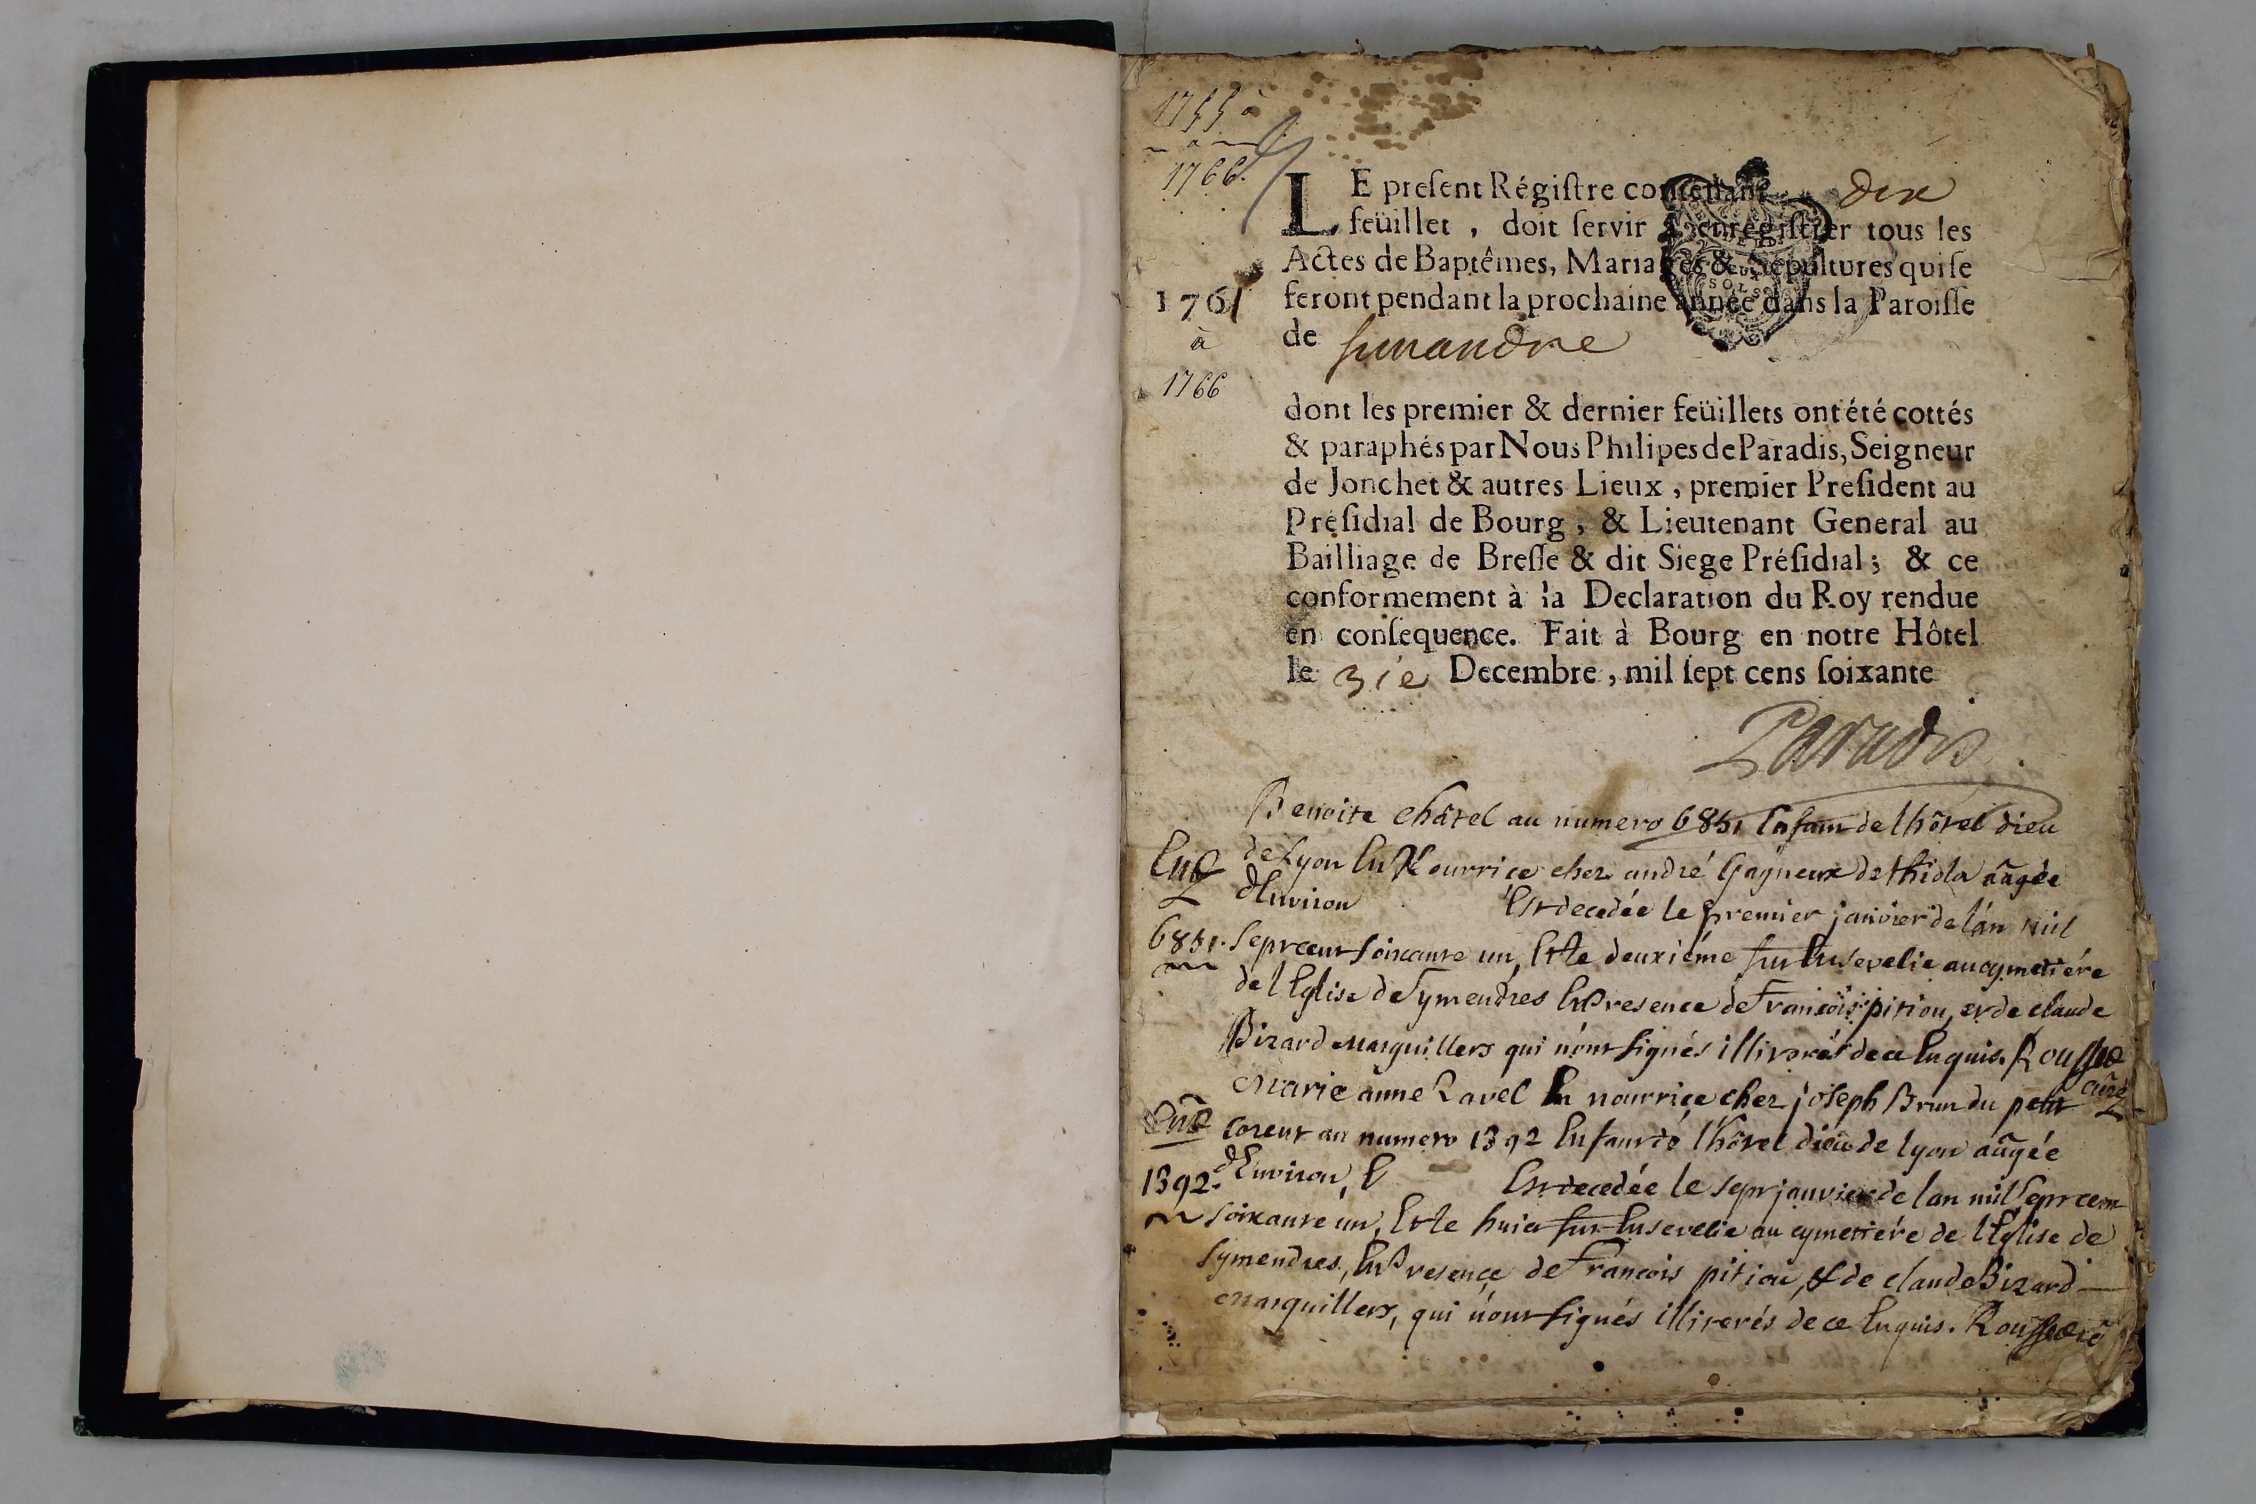 1755 à
1766.
LE preſent Régiſtre contenant dix
feüillet, doit ſervir à enrégiſtrer tous les
Actes de Baptêmes, Mariages & Sepultures qui ſe
1761 feront pendant la prochaine année dans la Paroiſſe
à de Simandre
1766
dont les premier & dernier feüillets ont été cottés
& paraphés par Nous Philipes de Paradis, Seigneur
de Jonchet & autres Lieux, premier Preſident au
Préſidial de Bourg, & Lieutenant General au
Bailliage de Breſſe & dit Siege Préſidial; & ce
conformement à la Declaration du Roy rendue
en conſequence. Fait à Bourg en notre Hôtel
le 31e Decembre, mil ſept cens ſoixante
Paradis
Benoite Châtel au numero 6851 Enfant de lhôtel dieu
de Lyon En Nourrice chez andré Gagneux de thiola aâgée
d'Environ Est decedée le premier janvier de l'an mil
6851. Sept cent Soixante un, Et le deuxiéme fut Ensevelie au cymetiére
de l'Eglise de Symendres En Presence de François pitiou, et de claude
Bizard Marguillers qui n'ont signés illiterés de ce Enquis. Rousset
curé
Marie anne Ravel En nourrice chez joseph Brun du petit
Corent au numero 1392 Enfant de l'hôtel dieu de lyon aâgée
1392. d'Environ, Est decedée le sept janvier de lan mil Sept cent
Soixante un, Et le huict fut Ensevelie au cymetiére de l'Eglise de
Symendres, En Presence de François pitiou, & de claude Bizard
Marguillers, qui n'ont signés illiterés de ce Enquis. Rousset